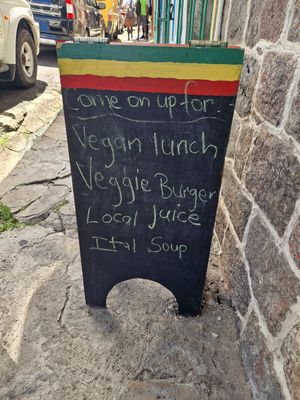 Come on up for:
Vegan lunch
Veggie Burger
Local Juice
Ital Soup